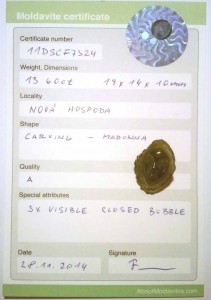 Moldavite certificate
Certificate number
11DSCF7324
Weight, Dimensions
13.60ct 19x14x10mm
Locality
NOVÁ HOSPODA
Shape
CARVING - MADONNA
Quality
A
Special attributes
3X VISIBLE CLOSED BUBBLE
Date
Signature
28.11.2014
AboutMoldavites.com